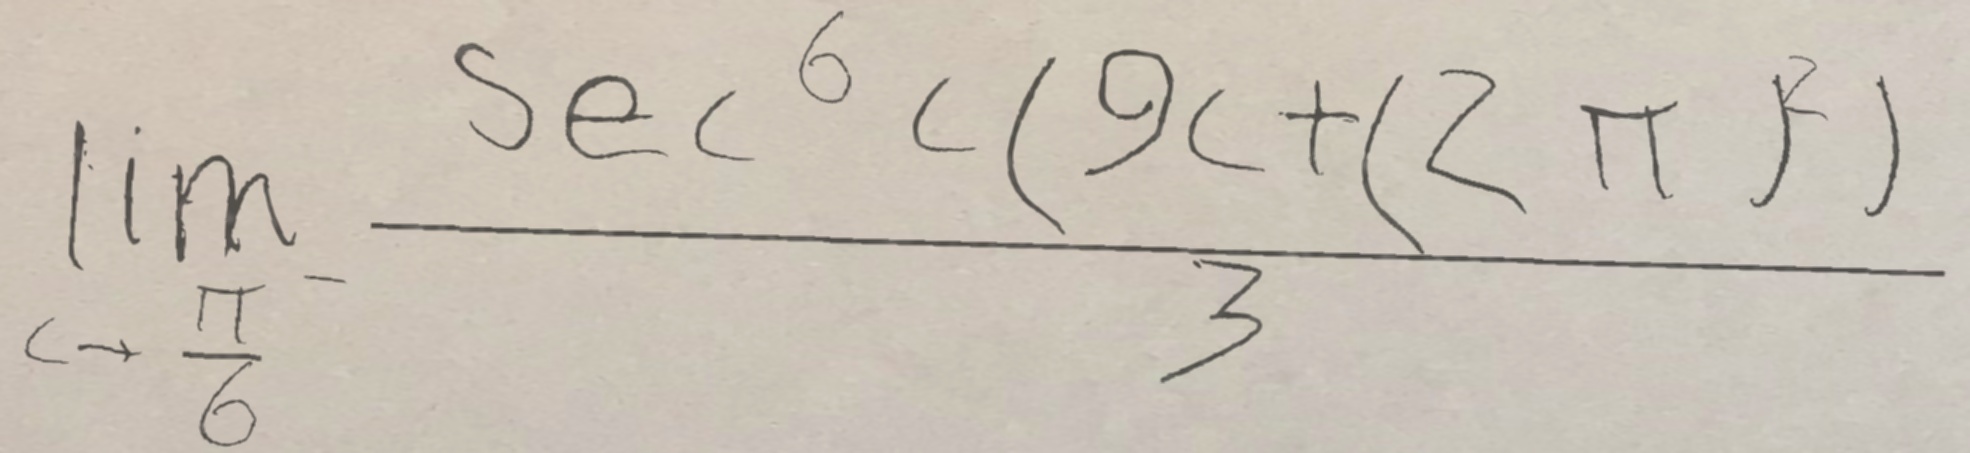 \lim_{c \to \frac{\pi}{6}^{-}} \frac{\sec^{6} c (9c + (2\pi)^{2})}{3}